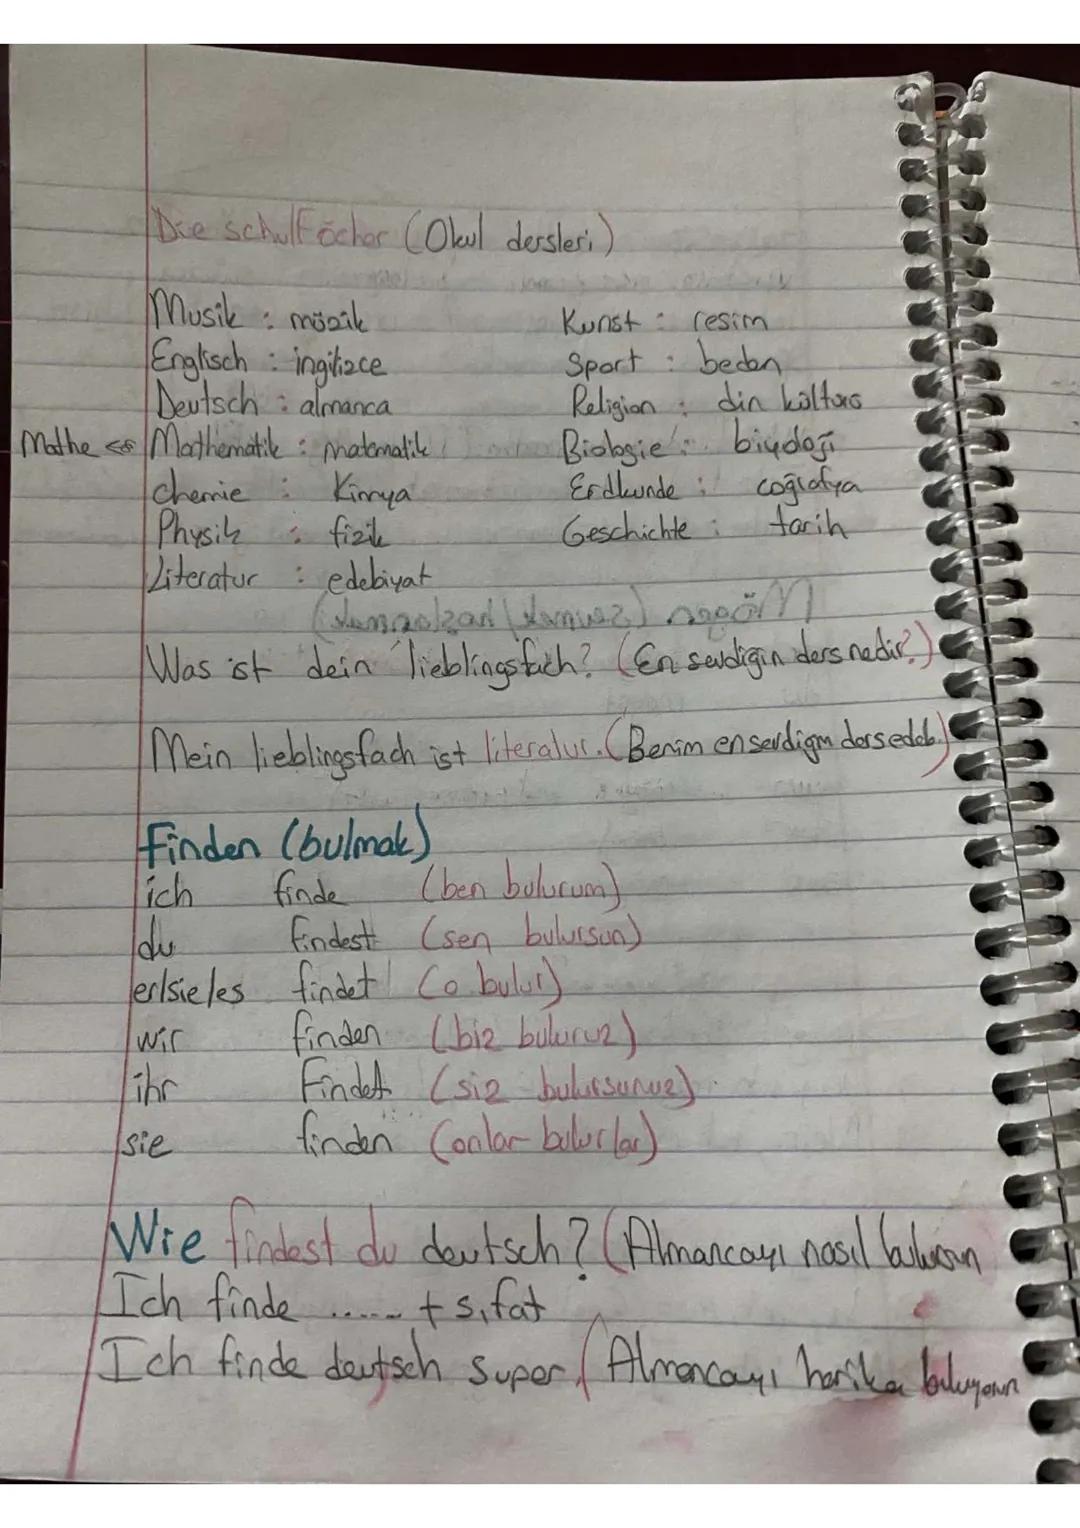 Die schulföcher (Okul dersleri)
Musik : müzik Kunst : resim
Englisch : ingilizce Sport : beden
Deutsch : almanca Religion : din kültürü
Mathe Mathematik : matematik Biologie : biyoloji
chemie : Kimya Erdkunde : coğrafya
Physik : fizik Geschichte : tarih
Literatur : edebiyat
Mögen (sevmek/hoşlanmak)
Was ist dein lieblingsfach? (En sevdiğin ders nedir?)
Mein lieblingsfach ist literatur. (Benim en sevdiğim ders edeb.)
Finden (bulmak)
ich finde (ben bulurum)
du findest (sen bulursun)
er/sie/es findet (o bulur)
wir finden (biz buluruz)
ihr Findet (siz bulursunuz)
sie finden (onlar bulurlar)
Wie findest du deutsch? (Almancayı nasıl bulursun
Ich finde ...... + sıfat
Ich finde deutsch super. (Almancayı harika buluyorum